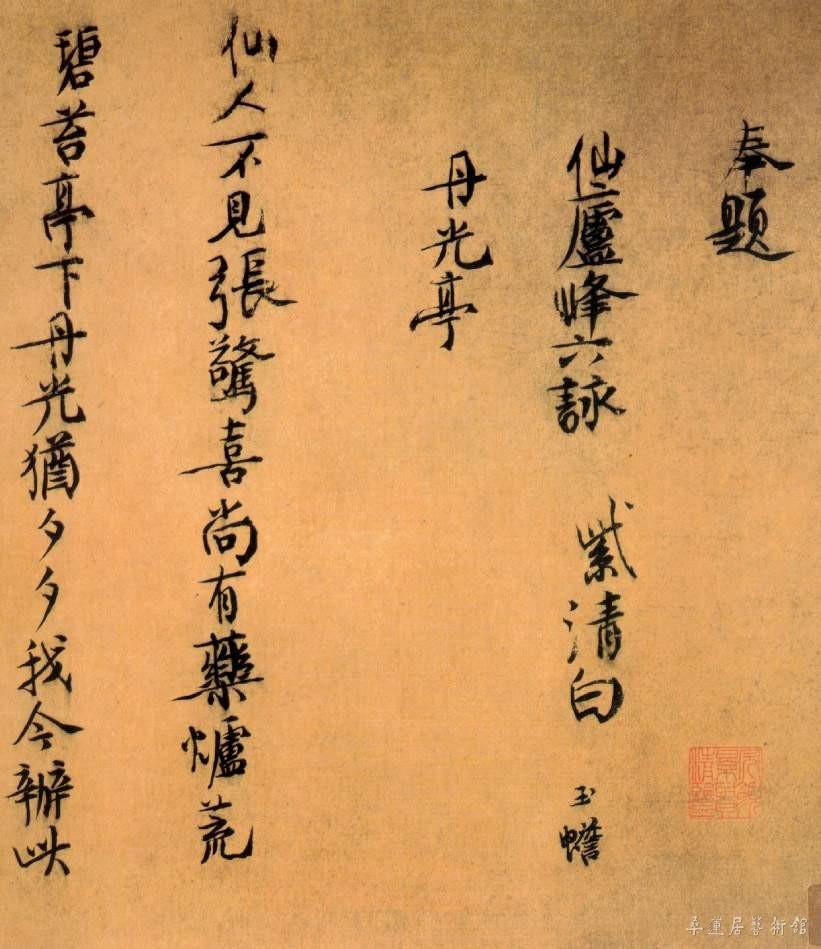 奉題
仙廬峰六詠 紫清白 玉蟾
丹光亭
仙人不見張驚喜尚有藥爐荒
碧苔亭下丹光猶夕夕我今辦此
桑蓮居藝術館